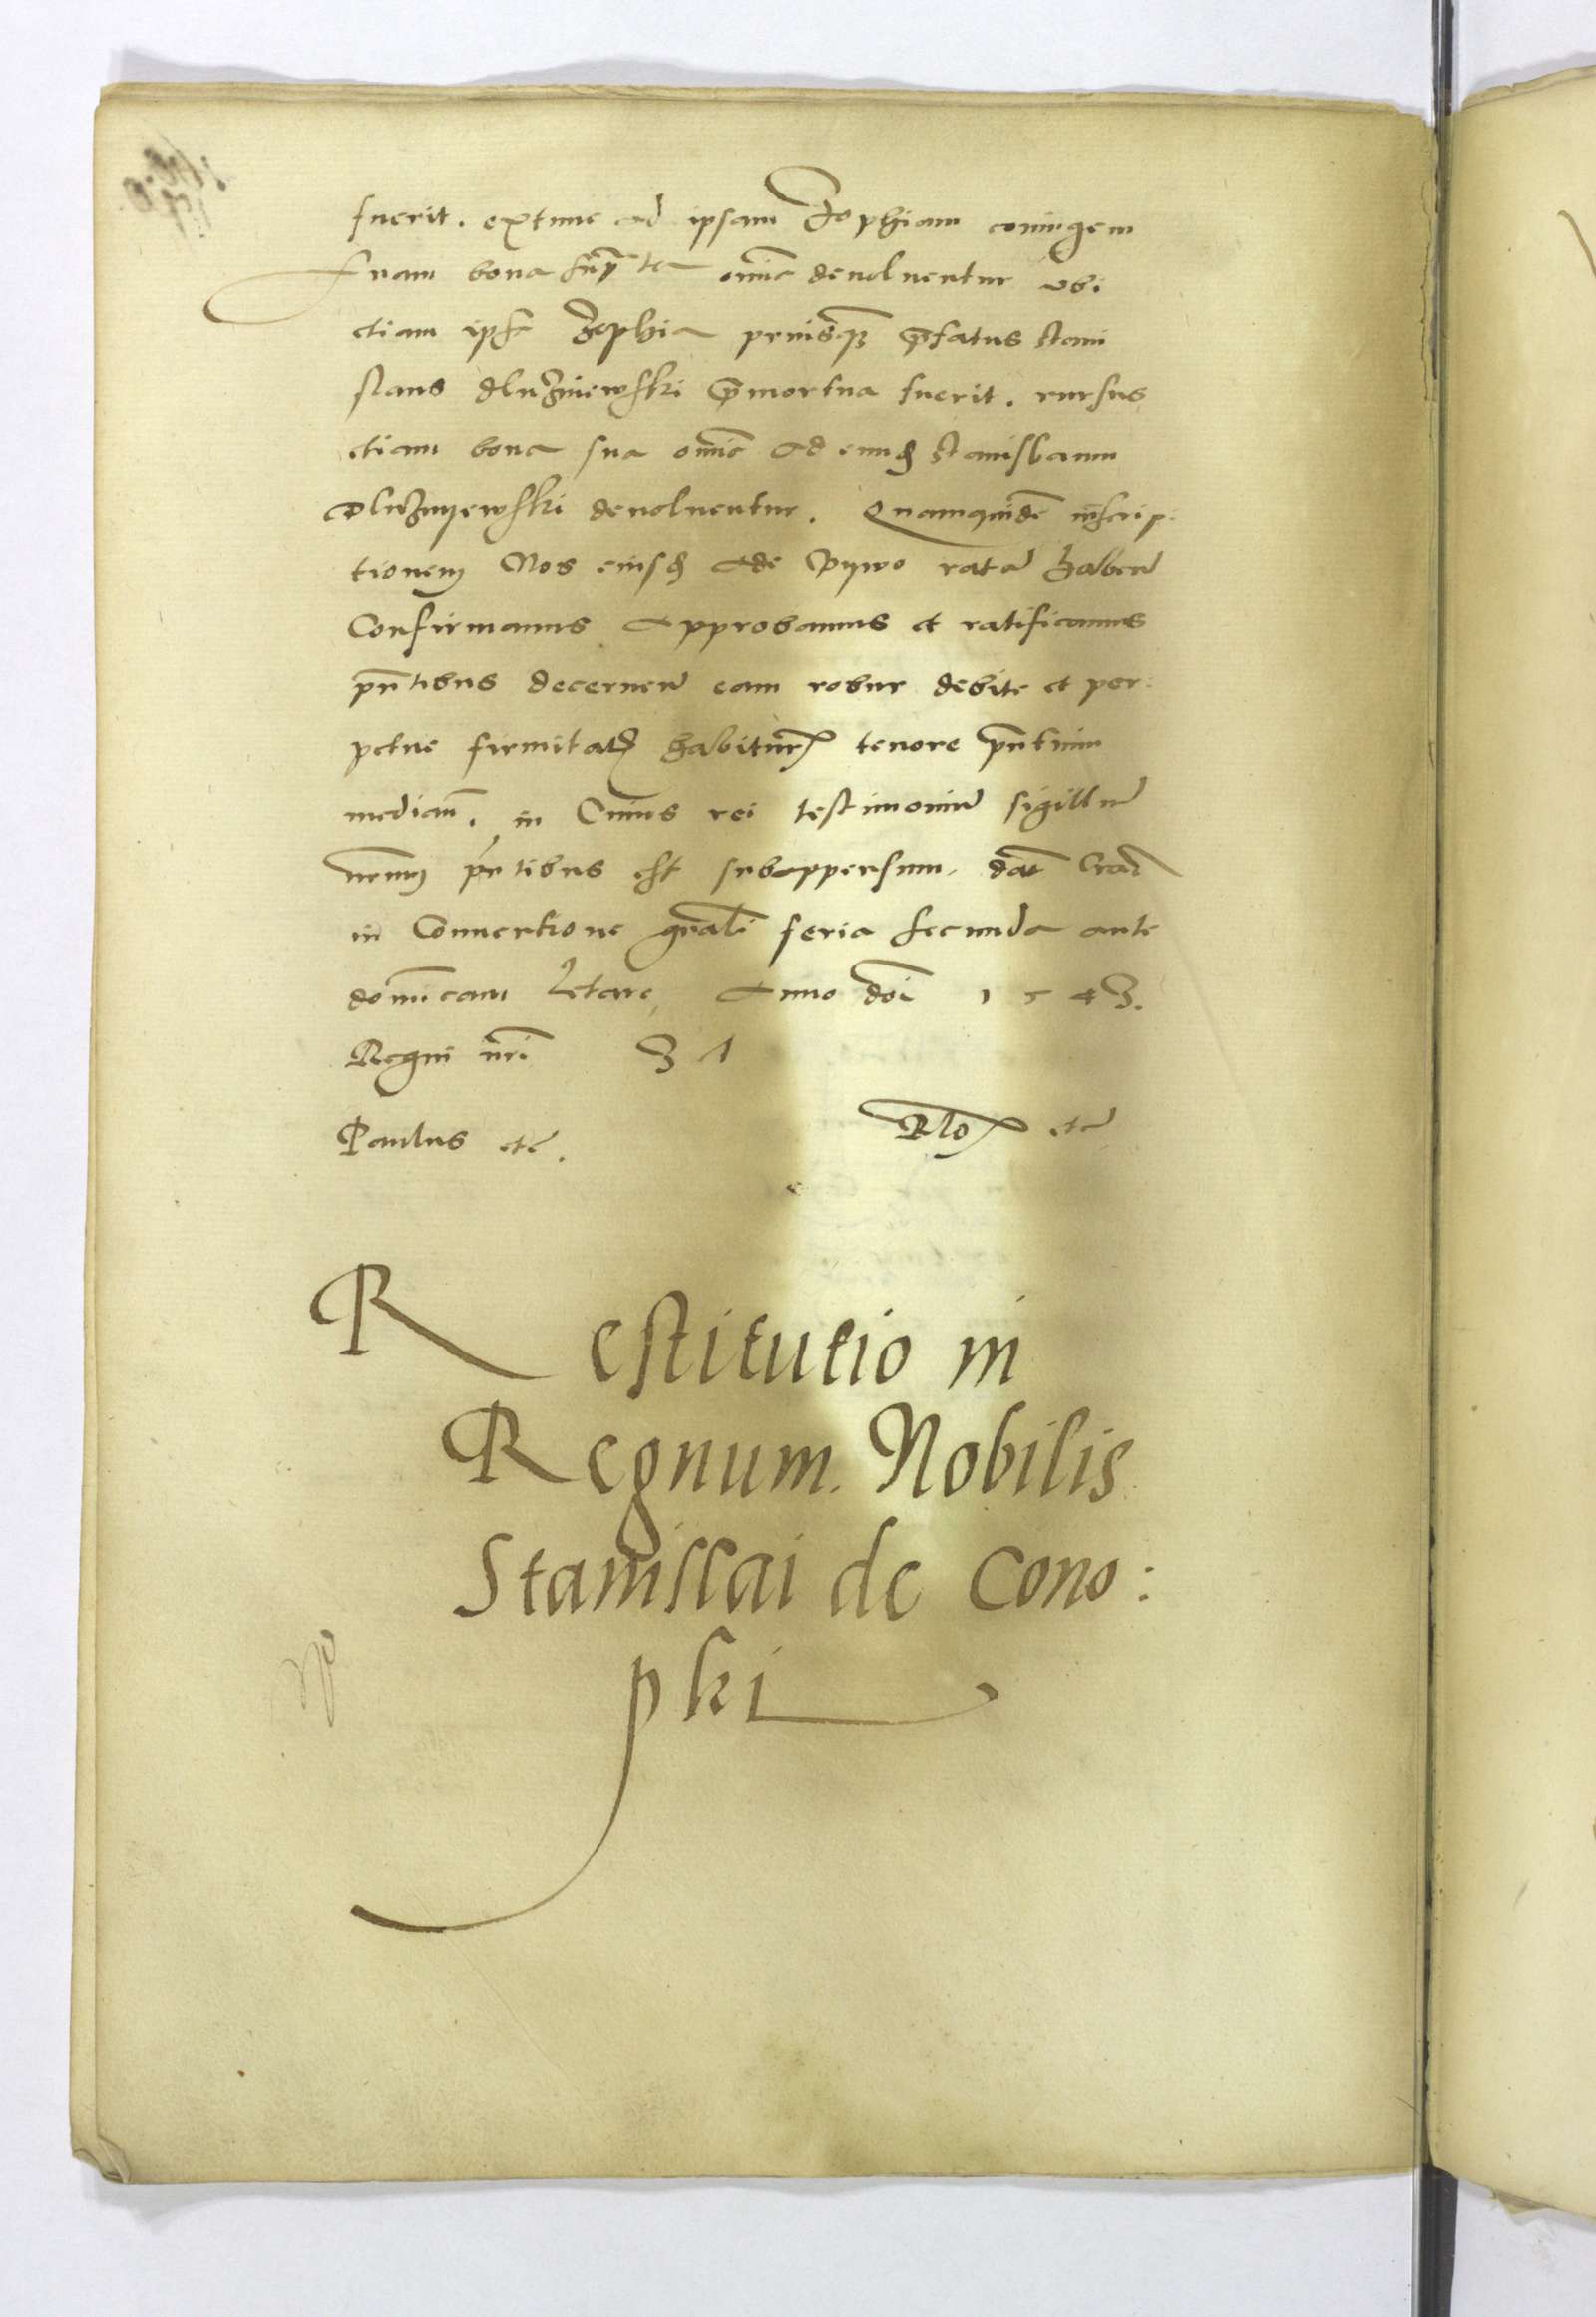 fuerit. extunc ad ipsam Zophiam coniugem
suam bona omnia devoluentur vbi
etiam ipsa Zophia priusq3 p̄fatus stani
slaus dluzniewski p̄mortua fuerit. rursus
etiam bona sua om̄ia ad eund stanislaum
Dluznyewski devoluentur. Quamquidē inscrip:
tionem Nos eiusd de vywo ratā habentes
Confirmamus Approbamus et ratificamus
pn̄tibus decernen eam robur debite et per:
petue firmitatis habiturā tenore pn̄tium
median̄. in Cuius rei testimoniū sigillum
nrum pn̄tibus est subappensum. dat Crac̄
in Conuentione gn̄ali feria secunda ante
dominicam Letare, Anno dōi 1543.
Regni nr̄i 37
Paulus etc. Rlo etc
Restitutio in
Regnum. Nobilis
Stanislai de Cono:
pki